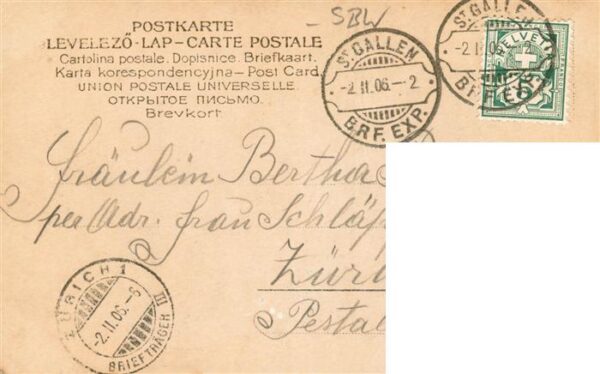 SBW
POSTKARTE
LEVELEZŐ-LAP-CARTE POSTALE
Cartolina postale. Dopisnice. Briefkaart.
Karta korespondencyjna-Post Card.
UNION POSTALE UNIVERSELLE
ОТКРЫТОЕ ПИСЬМО.
Brevkort.
ST GALLEN
-2.II.06.-2
BRF. EXP.
ST GALLEN
-2.II.
-2
BRF. EXP.
HELVETIA
5
Fräulein Bertha
per Adr. Frau
ZÜRICH 1
-2.II.06.-6
BRIEFTRÄGER III